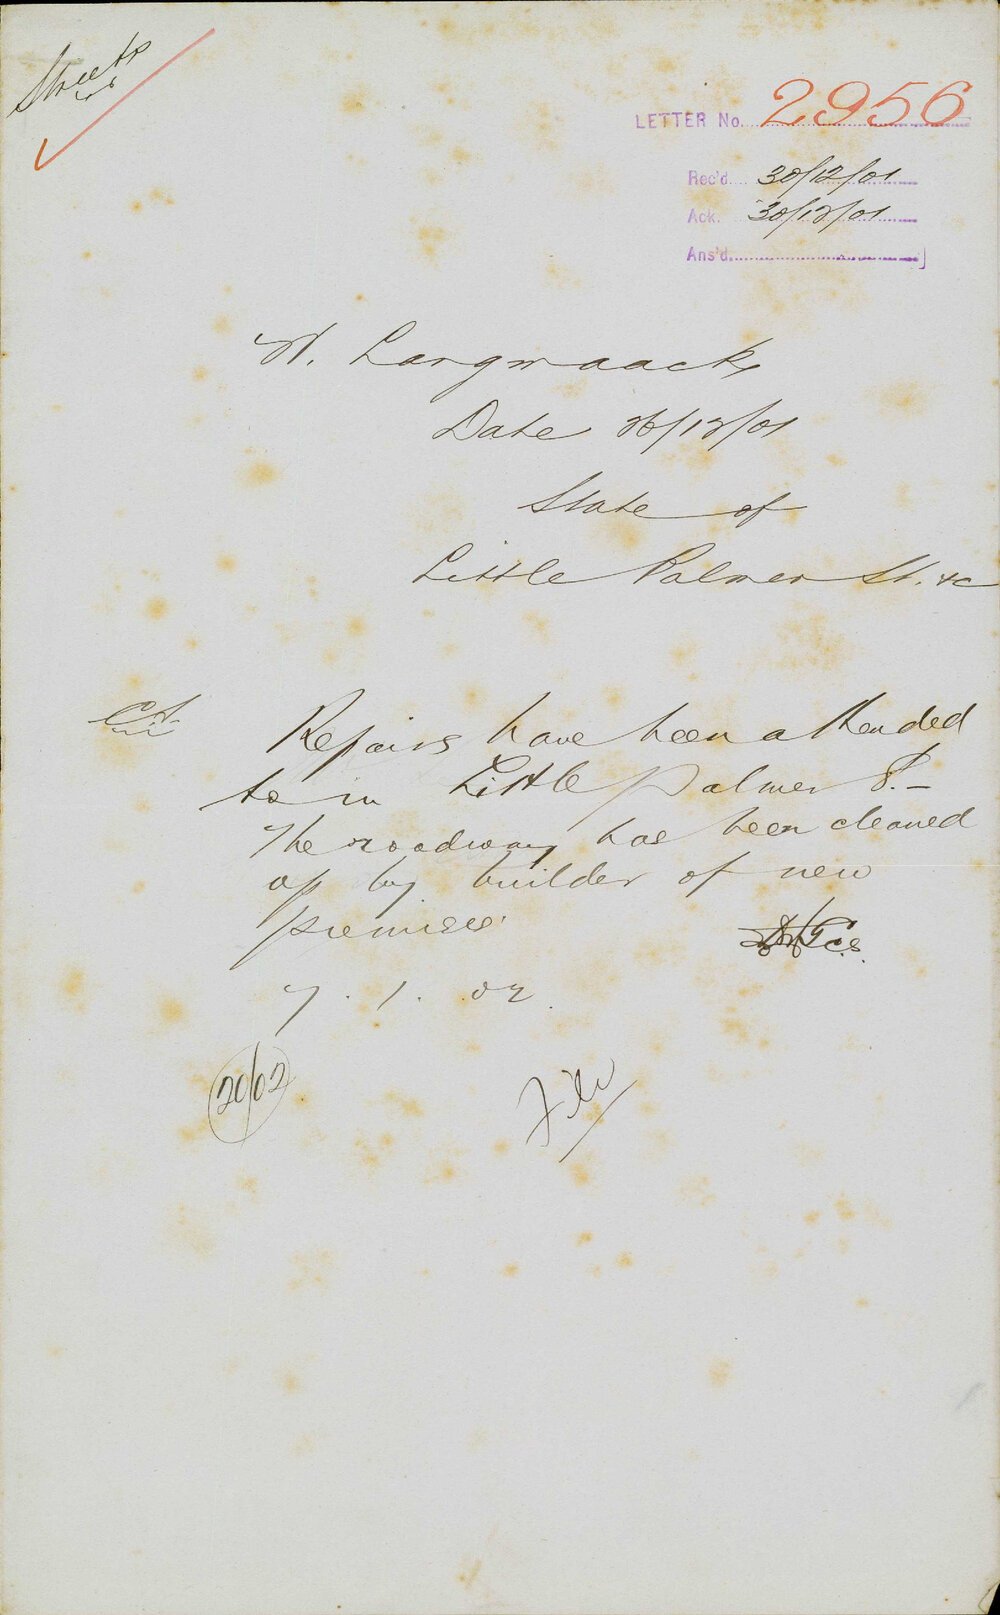 Streets
LETTER No. 2956
Rec'd. 30/12/01
Ack. 30/12/01
Ans'd.
W. Langmaack,
Date 26/12/01
State of
Little Palmer St. &c
Repairs have been attended
to in Little Palmer St. –
The roadway has been cleaned
up by builder of new
premises.
C.S.
7.1.02.
20/02
File